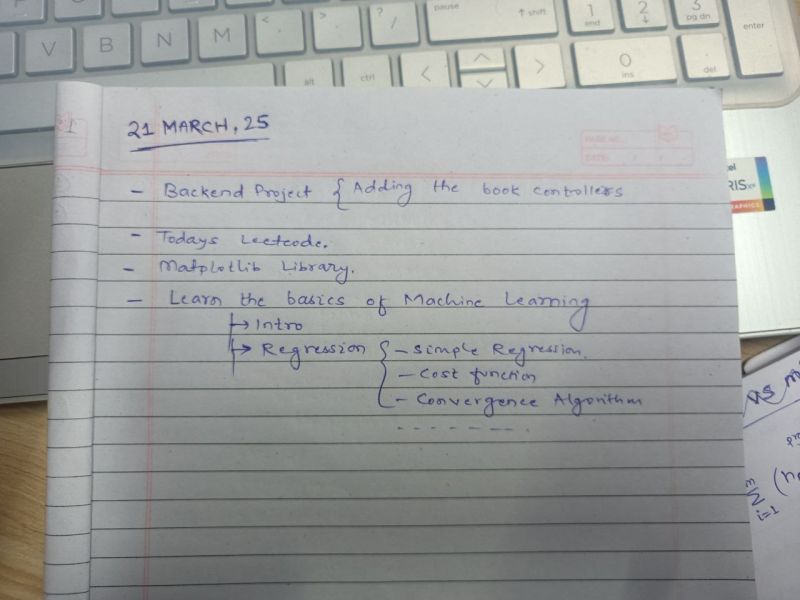 pause
< > ? / ↑ shift 1 end 2 ↓ 3 pg dn
V B N M , . enter
alt ctrl < > 0 ins . del
1
21 MARCH, 25
PAGE NO.
DATE: / /
- Backend Project { Adding the book controllers
- Todays Leetcode.
- Matplotlib Library.
- Learn the basics of Machine Learning
→ Intro
→ Regression { - Simple Regression.
- Cost function
- Convergence Algorithm
- - - - - - - .
el
RIS Xe
GRAPHICS
i=1